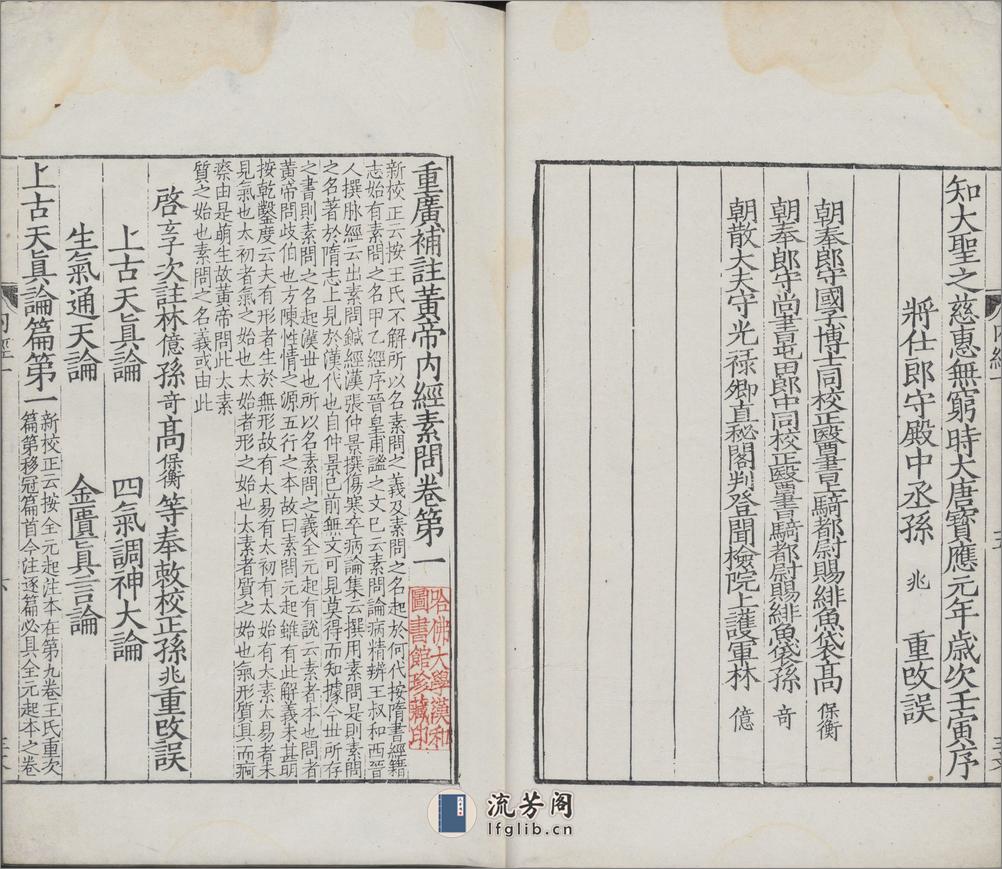 知大聖之慈惠無窮時大唐寶應元年歲次壬寅序
將仕郎守殿中丞孫 兆 重改誤
朝奉郎守國子博士同校正醫書上騎都尉賜緋魚袋高 保衡
朝奉郎守尚書屯田郎中同校正醫書騎都尉賜緋魚袋孫 奇
朝散大夫守光祿卿直秘閣判登聞檢院上護軍林 億
重廣補註黃帝內經素問卷第一
新校正云按王氏不解所以名素問之義及素問之名起於何代按隋書經籍
志始有素問之名甲乙經序晉皇甫謐之文已云素問論病精辨王叔和西晉
人撰脉經云出素問鍼經漢張仲景撰傷寒卒病論集云撰用素問是則素問
之名著於隋志上見於漢代也自仲景已前無文可見莫得而知據今世所存
之書則素問之名起漢世也所以名素問之義全元起有說云素者本也問者
黃帝問歧伯也方陳性情之源五行之本故曰素問元起雖有此解義未甚明
按乾鑿度云夫有形者生於無形故有太易有太初有太始有太素太易者未
見氣也太初者氣之始也太始者形之始也太素者質之始也氣形質具而痾
瘵由是萌生故黃帝問此太素
質之始也素問之名義或由此
啓玄子次註林億孫奇高保衡等奉敕校正孫兆重改誤
上古天眞論 四氣調神大論
生氣通天論 金匱眞言論
上古天眞論篇第一
新校正云按全元起注本在第九卷王氏重次
篇第移冠篇首今注逐篇必具全元起本之卷
哈佛大學漢和
圖書館珍藏印
流芳阁
lfglib.cn